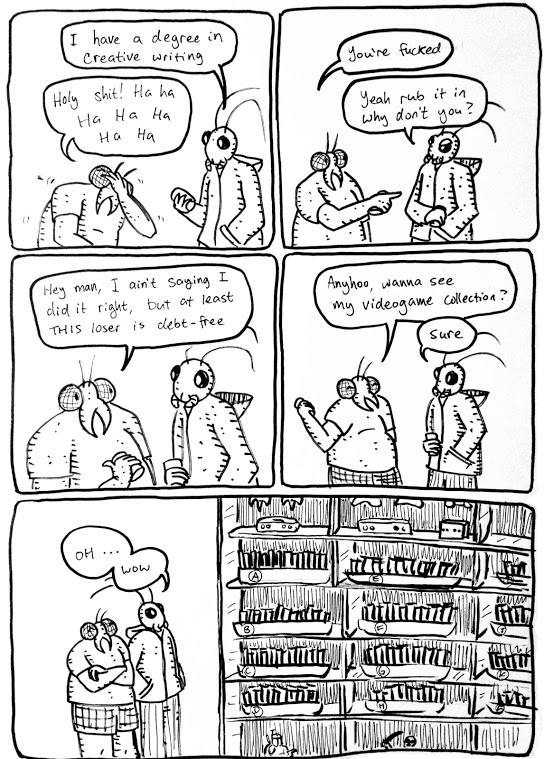 I have a degree in
Creative writing
Holy shit! Ha ha
Ha Ha Ha
Ha Ha
You're fucked
Yeah rub it in
why don't you?
Hey man, I ain't saying I
did it right, but at least
THIS loser is debt-free
Anyhoo, wanna see
my videogame collection?
sure
OH ...
wow
A
E
B
F
C
G
D
H